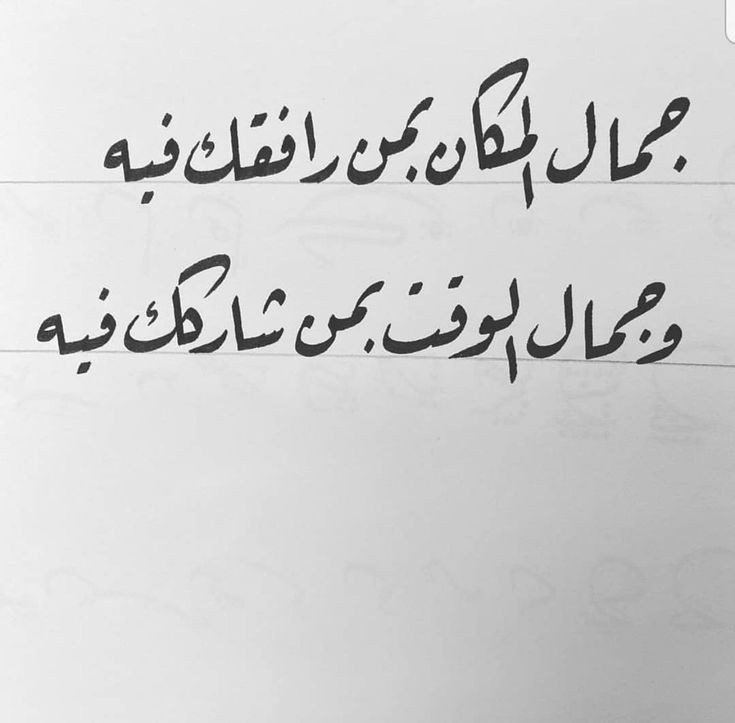 جمال المكان بمن رافقك فيه
وجمال الوقت بمن شاركك فيه